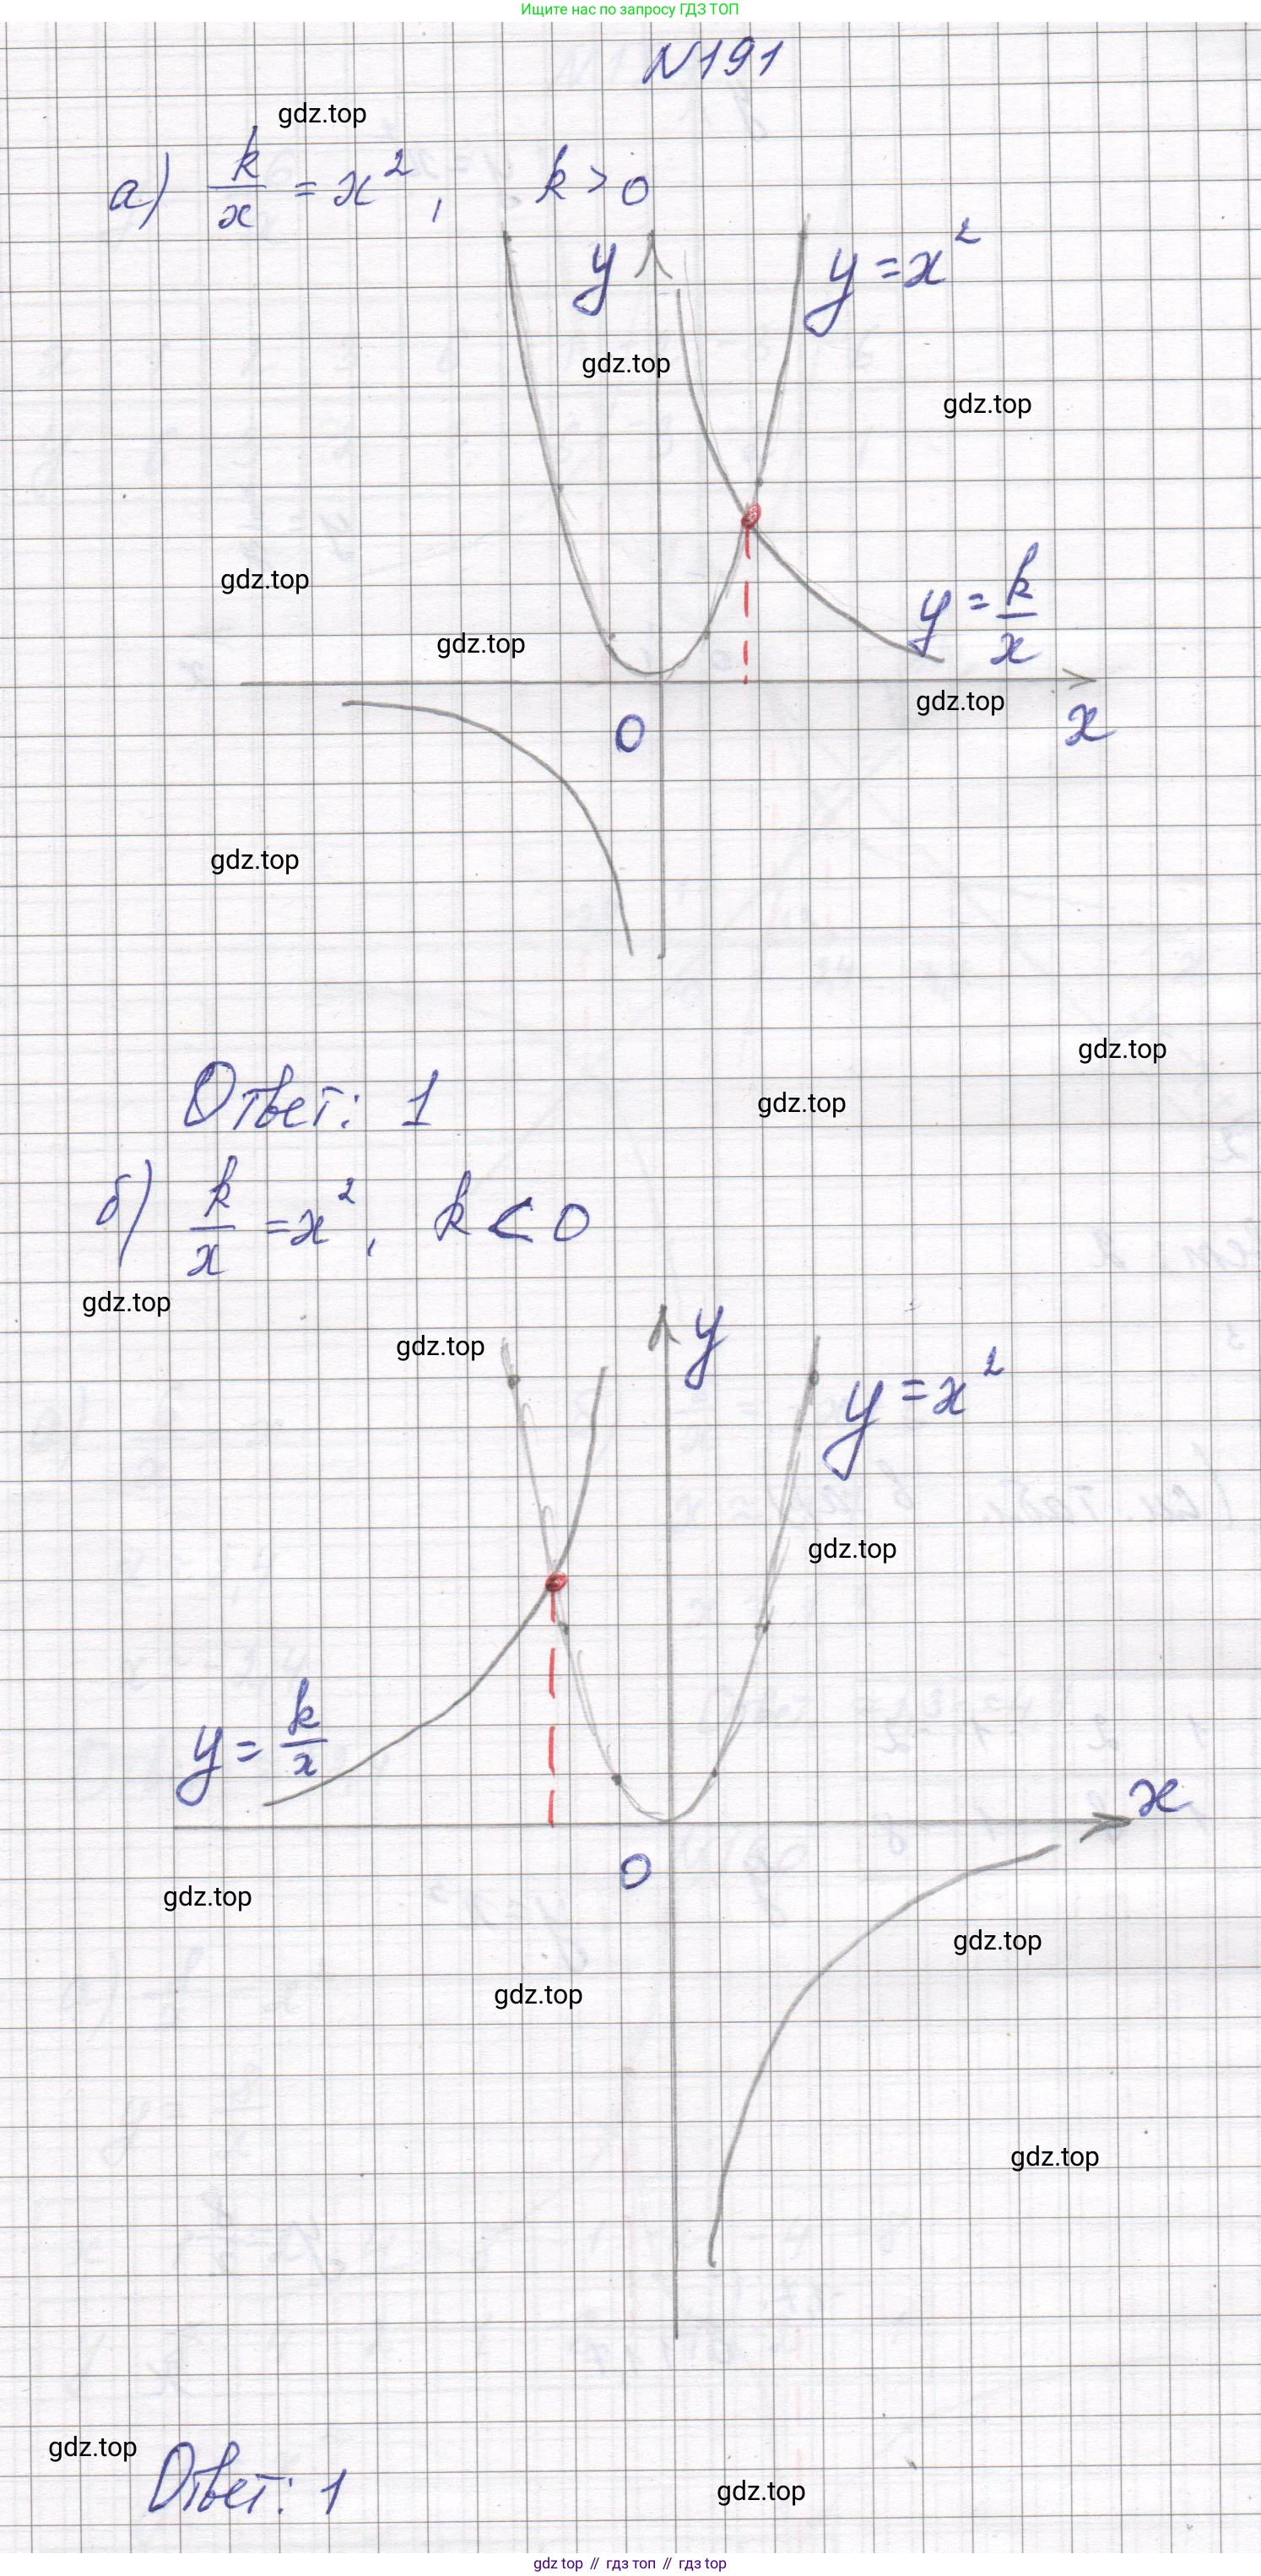 Ищите нас по запросу ГДЗ ТОП
N191
gdz.top
а) k/x = x², k > 0
y
y = x²
gdz.top
gdz.top
gdz.top
y = k/x
gdz.top
gdz.top
0
x
gdz.top
gdz.top
Ответ: 1
gdz.top
б) k/x = x², k < 0
gdz.top
y
gdz.top
y = x²
gdz.top
y = k/x
x
0
gdz.top
gdz.top
gdz.top
gdz.top
gdz.top
Ответ: 1
gdz.top
gdz top // гдз топ // гдз top